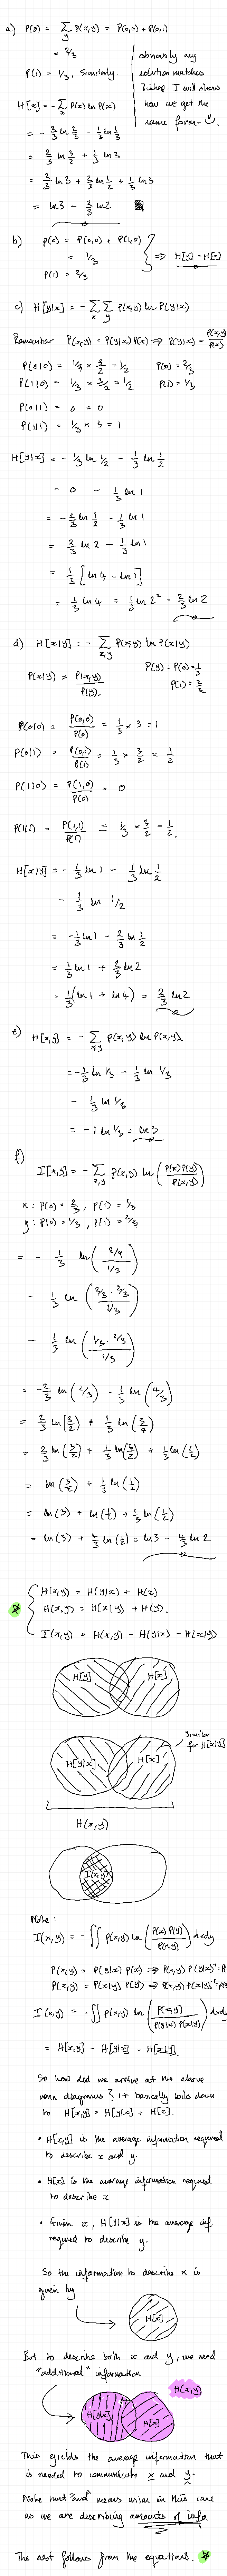 a) P(0) = Σ_y P(x,y) = P(0,0) + P(0,1)
= 2/3
P(1) = 1/3, Similarly.
obviously my
solution matches
Bishop. I will show
how we get the
same form- ☺.
H[x] = -Σ_x P(x) ln P(x)
= -2/3 ln 2/3 - 1/3 ln 1/3
= 2/3 ln 3/2 + 1/3 ln 3
= 2/3 ln 3 + 2/3 ln 1/2 + 1/3 ln 3
= ln 3 - 2/3 ln 2
b) p(0) = P(0,0) + P(1,0)
= 1/3
P(1) = 2/3
⇒ H[y] = H[x]
c) H[y|x] = -Σ_x Σ_y P(x,y) ln P(y|x)
Remember P(x,y) = P(y|x) P(x) ⇒ P(y|x) = P(x,y)/P(x)
P(0|0) = 1/3 × 3/2 = 1/2 P(0) = 2/3
P(1|0) = 1/3 × 3/2 = 1/2 P(1) = 1/3
P(0|1) = 0 = 0
P(1|1) = 1/3 × 3 = 1
H[y|x] = -1/3 ln 1/2 - 1/3 ln 1/2
- 0 - 1/3 ln 1
= -2/3 ln 1/2 - 1/3 ln 1
= 2/3 ln 2 - 1/3 ln 1
= 1/3 [ln 4 - ln 1]
= 1/3 ln 4 = 1/3 ln 2² = 2/3 ln 2
d) H[x|y] = -Σ_{x,y} P(x,y) ln P(x|y)
P(x|y) = P(x,y)/P(y). P(y): P(0) = 1/3
P(1) = 2/3
P(0|0) = P(0,0)/P(0) = 1/3 × 3 = 1
P(0|1) = P(0,1)/P(1) = 1/3 × 3/2 = 1/2
P(1|0) = P(1,0)/P(0) = 0
P(1|1) = P(1,1)/P(1) = 1/3 × 3/2 = 1/2.
H[x|y] = -1/3 ln 1 - 1/3 ln 1/2
- 1/3 ln 1/2
= -1/3 ln 1 - 2/3 ln 1/2
= 1/3 ln 1 + 2/3 ln 2
= 1/3 (ln 1 + ln 4) = 2/3 ln 2
e) H[x,y] = -Σ_{x,y} P(x,y) ln P(x,y)
= -1/3 ln 1/3 - 1/3 ln 1/3
- 1/3 ln 1/3
= -1 ln 1/3 = ln 3
f) I[x,y] = -Σ_{x,y} P(x,y) ln (P(x)P(y)/P(x,y))
x: P(0) = 2/3, P(1) = 1/3
y: P(0) = 1/3, P(1) = 2/3
= -1/3 ln ((2/9)/(1/3))
- 1/3 ln ((2/3 · 2/3)/(1/3))
- 1/3 ln ((1/3 · 2/3)/(1/3))
= -2/3 ln (2/3) - 1/3 ln (4/3)
= 2/3 ln (3/2) + 1/3 ln (3/4)
= 2/3 ln (3/2) + 1/3 ln (3/2) + 1/3 ln (1/2)
= ln (3/2) + 1/3 ln (1/2)
= ln (3) + ln (1/2) + 1/3 ln (1/2)
= ln (3) + 4/3 ln (1/2) = ln 3 - 4/3 ln 2
H(x,y) = H(y|x) + H(x)
H(x,y) = H(x|y) + H(y).
I(x,y) = H(x,y) - H(y|x) - H(x|y)
H[y] H[x]
H[y|x] H[x]
Similar
for H[x|y]
H(x,y)
I(x,y)
Note:
I(x,y) = -∫∫ P(x,y) ln (P(x) P(y)/P(x,y)) dxdy
P(x,y) = P(y|x) P(x) ⇒ P(x,y) P(y|x)⁻¹ =
P(x,y) = P(x|y) P(y) ⇒ P(x,y) P(x|y)⁻¹ =
I(x,y) = -∫∫ P(x,y) ln (P(x,y)/P(y|x) P(x|y)) dxdy
= H[x,y] - H[y|x] - H[x|y].
So how did we arrive at the above
venn diagrams? It basically boils down
to H[x,y] = H[y|x] + H[x].
• H[x,y] is the average information required
to describe x and y.
• H[x] is the average information required
to describe x
• Given x, H[y|x] is the average inf
required to describe y.
So the information to describe x is
given by
H[x]
But to describe both x and y, we need
"additional" information
H(x,y)
H[y|x] H[x]
This yields the average information that
is needed to communicate x and y.
Note that "and" means union in this case
as we are describing amounts of info.
The rest follows from the equations.